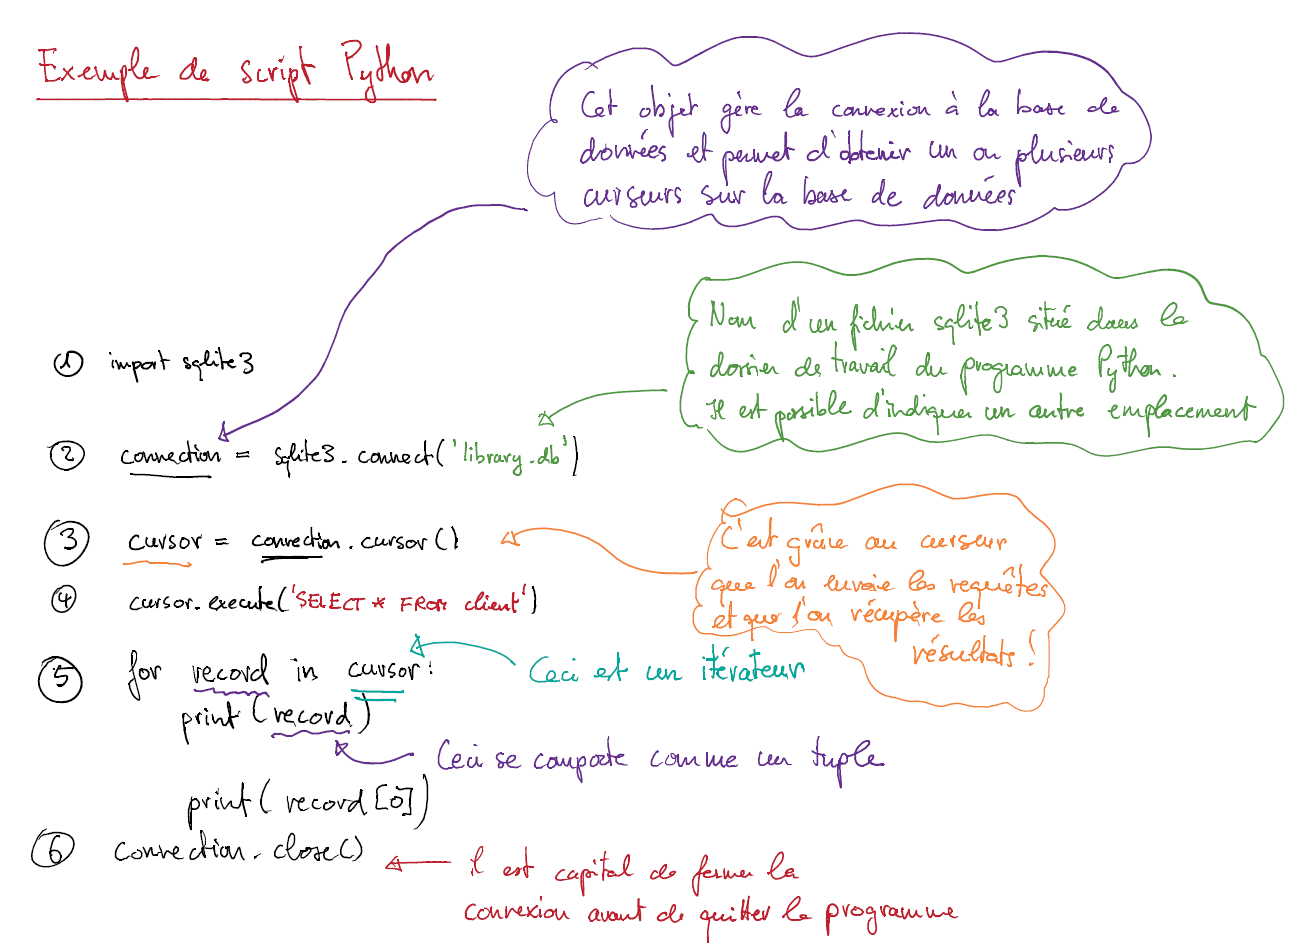 Exemple de script Python
Cet objet gère la connexion à la base de
données et permet d'obtenir un ou plusieurs
curseurs sur la base de données
Nom d'un fichier sqlite3 situé dans le
dossier de travail du programme Python.
Il est possible d'indiquer un autre emplacement
1 import sqlite3
2 connection = sqlite3.connect('library.db')
3 cursor = connection.cursor()
C'est grâce au curseur
que l'on envoie les requêtes
et que l'on récupère les
résultats !
4 cursor.execute('SELECT * FROM client')
5 for record in cursor:
Ceci est un itérateur
print(record)
Ceci se comporte comme un tuple
print(record[0])
6 connection.close()
il est capital de fermer la
connexion avant de quitter le programme